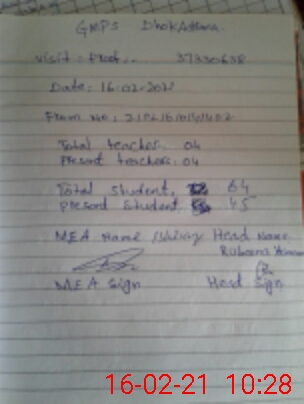 GMPS Dhok Adhana
Visit: Prof.. 37330638
Date: 16-02-202
From No:
Total teacher. 04
Present teachers: 04
Total Student. 64
Present Student. 45
MEA Name Head Name
Rubeena
MEA Sign Head Sign
16-02-21 10:28